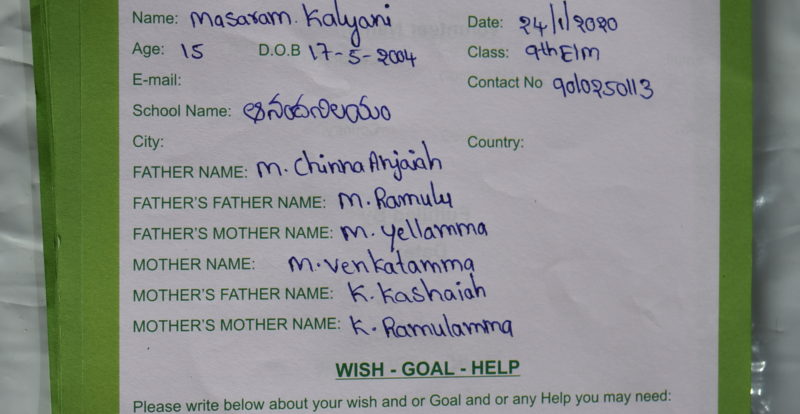 Name: Masaram. Kalyani Date: 24/1/2020
Age: 15 D.O.B 17-5-2004 Class: 9th E/m
E-mail: Contact No 9010250113
School Name: ఆనందనిలయం
City: Country:
FATHER NAME: M. Chinna Anjaiah
FATHER'S FATHER NAME: M. Ramulu
FATHER'S MOTHER NAME: M. Yellamma
MOTHER NAME: M. Venkatamma
MOTHER'S FATHER NAME: K. Kashaiah
MOTHER'S MOTHER NAME: K. Ramulamma
WISH - GOAL - HELP
Please write below about your wish and or Goal and or any Help you may need: